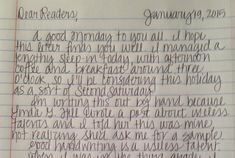 Dear Readers, January 19, 2015
a good monday to you all. I hope
this letter finds you well. I managed a
lengthy sleep in today, with afternoon
coffee and breakfast around three
o'clock, so I'll be considering this holiday
as a sort of Second Saturday.
am writing this out by hand because
Emilie G. Hill wrote a post about useless
talents and I told him this was mine,
not realizing she'll ask me for a sample.
good handwriting is a useless talent